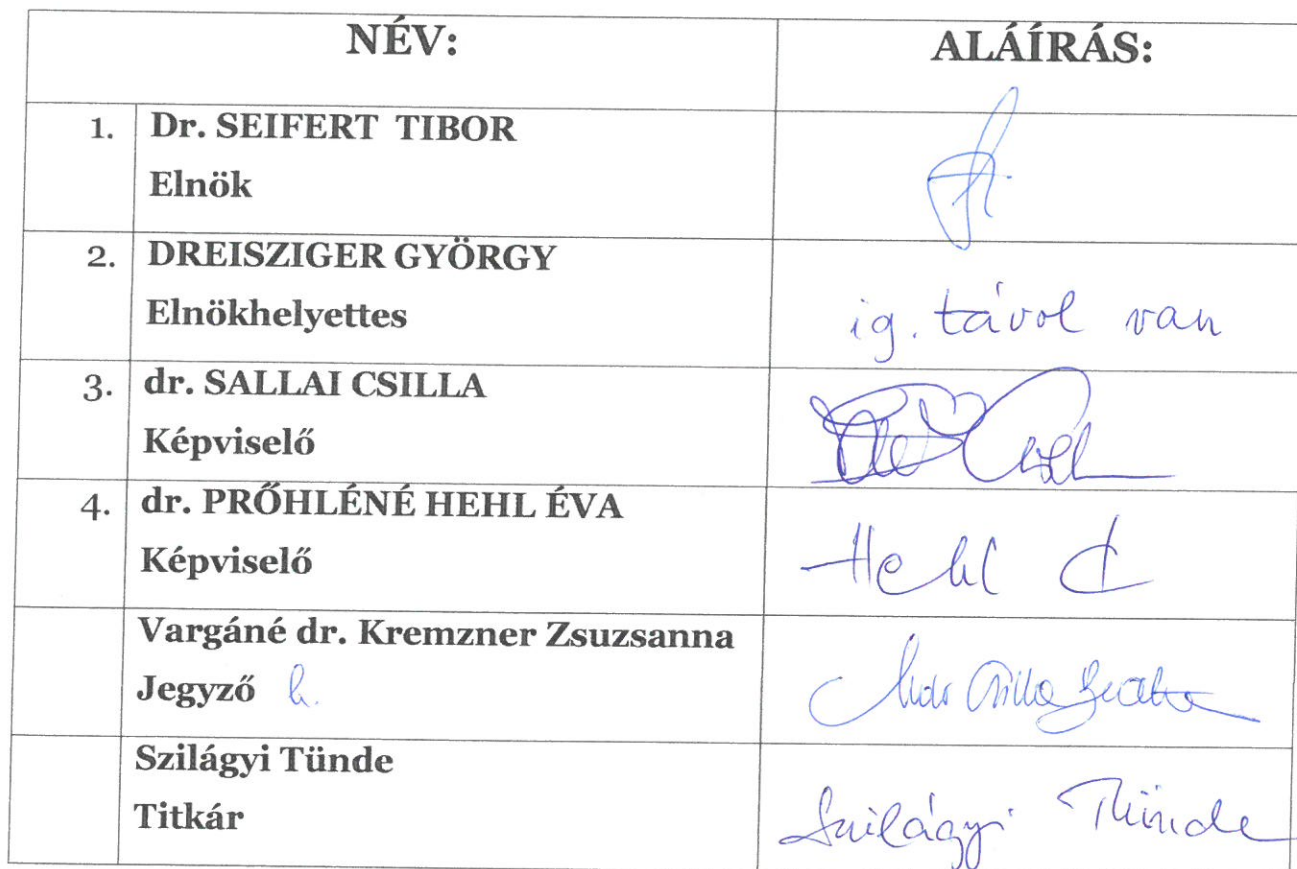 NÉV: ALÁÍRÁS:
1. Dr. SEIFERT TIBOR
Elnök
2. DREISZIGER GYÖRGY
Elnökhelyettes ig. távol van
3. dr. SALLAI CSILLA
Képviselő
4. dr. PRŐHLÉNÉ HEHL ÉVA
Képviselő Hehl É
Vargáné dr. Kremzner Zsuzsanna
Jegyző h.
Szilágyi Tünde
Titkár Szilágyi Tünde